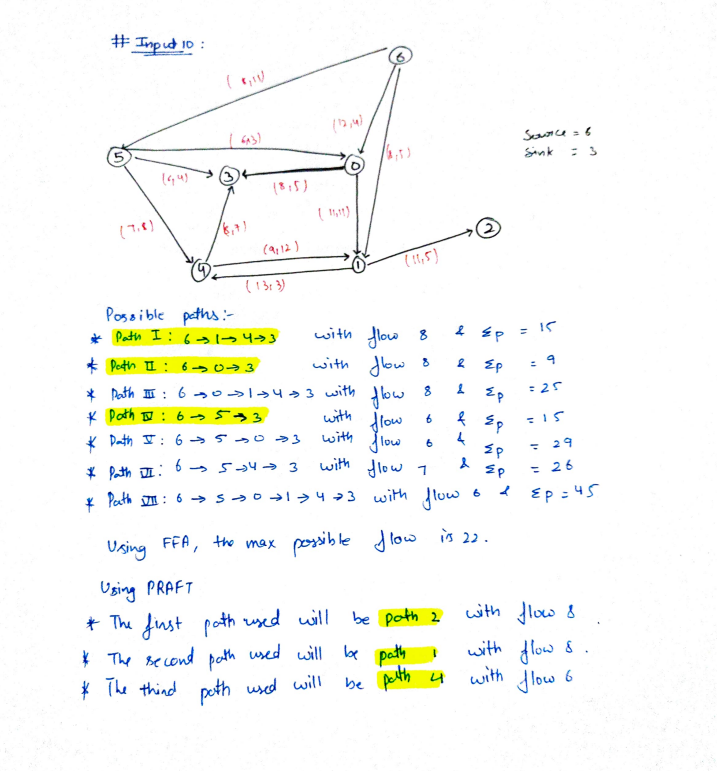 # Input 10 :
6
( 8,11)
(12,4)
Source = 6
( 6,3)
(8,5)
Sink = 3
5
0
(6,4)
3
(8,5)
(11,11)
2
(7,8)
(8,7)
(9,12)
4
1
(11,5)
(13,3)
Possible paths:-
* Path I : 6 → 1 → 4 → 3 with flow 8 & Σp = 15
* Path II : 6 → 0 → 3 with flow 8 & Σp = 9
* Path III : 6 → 0 → 1 → 4 → 3 with flow 8 & Σp = 25
* Path IV : 6 → 5 → 3 with flow 6 & Σp = 15
* Path V : 6 → 5 → 0 → 3 with flow 6 & Σp = 29
* Path VI : 6 → 5 → 4 → 3 with flow 7 & Σp = 26
* Path VII : 6 → 5 → 0 → 1 → 4 → 3 with flow 6 & Σp = 45
Using FFA, the max possible flow is 22.
Using PRAFT
* The first path used will be path 2 with flow 8 .
* The second path used will be path 1 with flow 8 .
* The third path used will be path 4 with flow 6